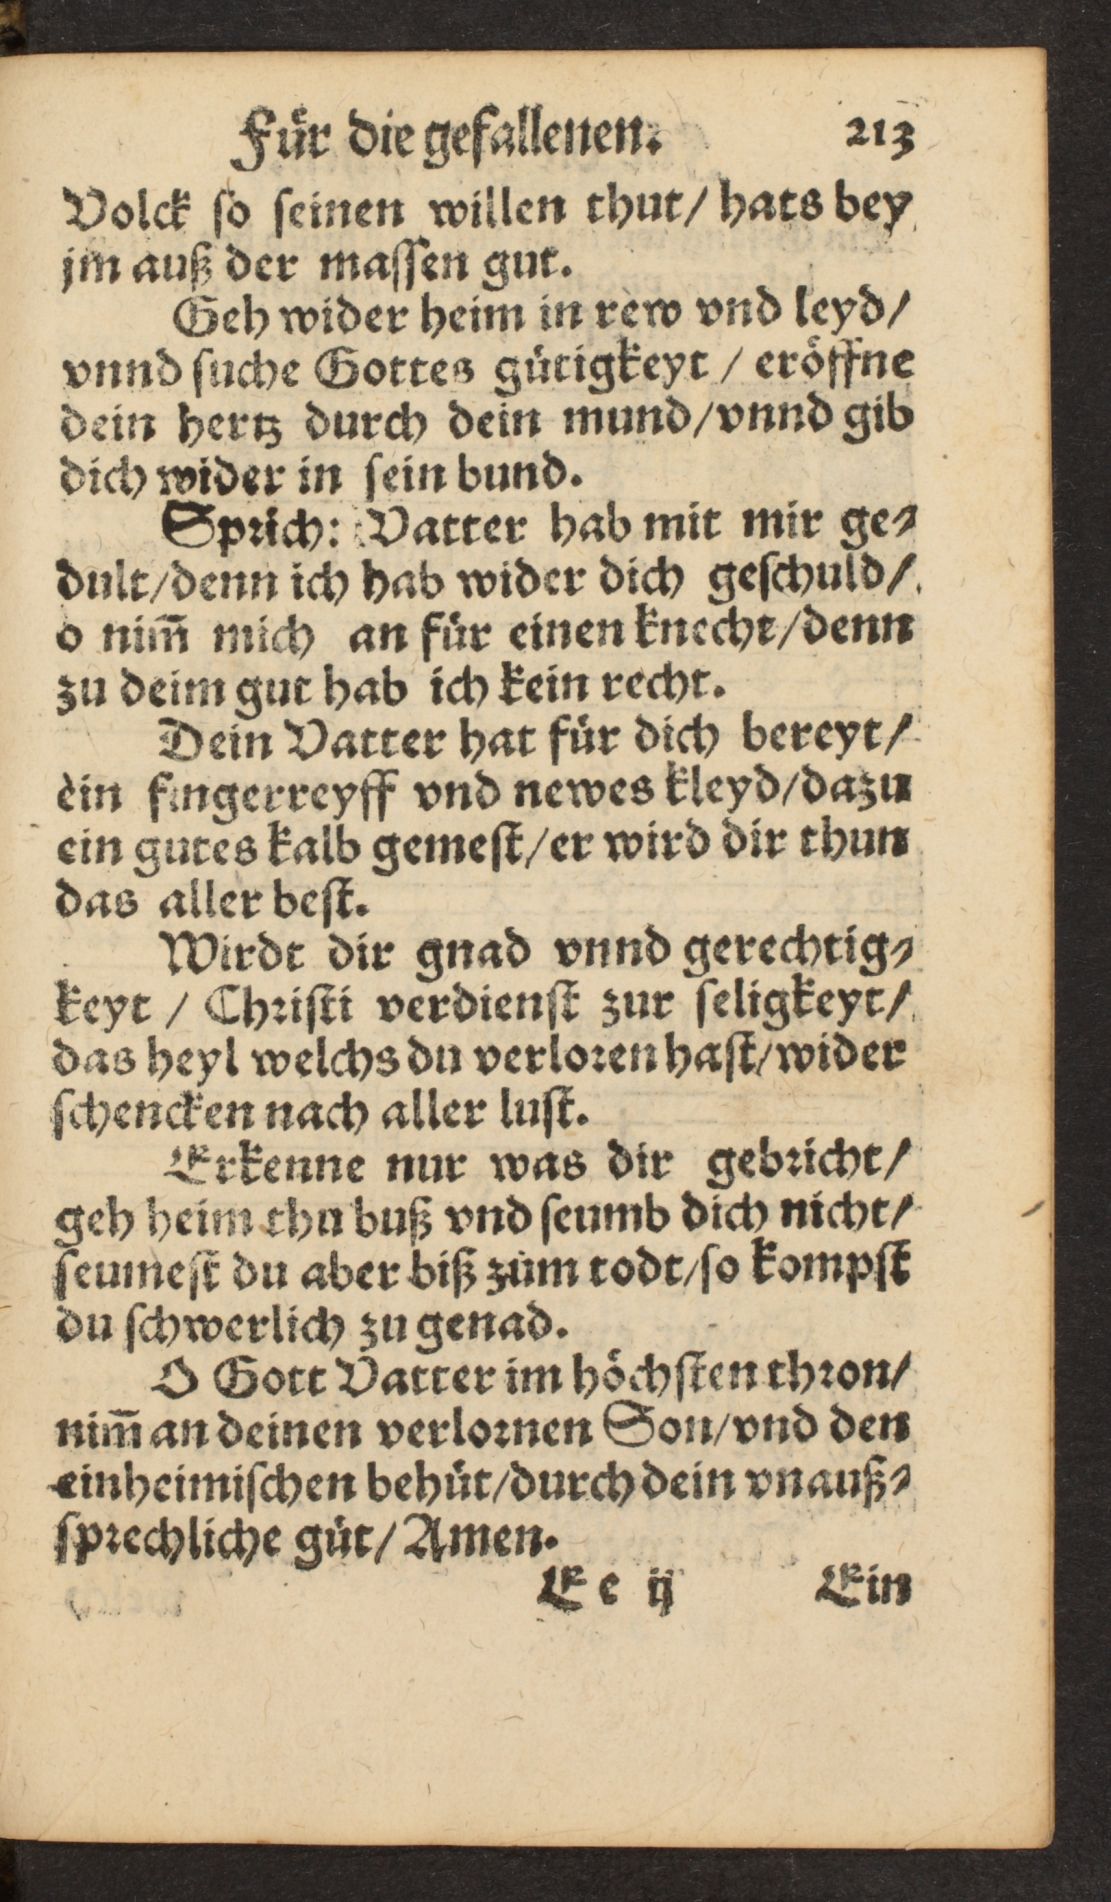 Für die gefallenen. 213
Volck so seinen willen thut/ hats bey
jm auß der massen gut.
Geh wider heim in rew vnd leyd/
vnnd suche Gottes gütigkeyt / eröffne
dein hertz durch dein mund/vnnd gib
dich wider in sein bund.
Sprich: Vatter hab mit mir ge⸗
dult/denn ich hab wider dich geschuld/
o nim̃ mich an für einen knecht/denn
zu deim gut hab ich kein recht.
Dein Vatter hat für dich bereyt/
ein fingerreyff vnd newes kleyd/dazu
ein gutes kalb gemest/er wird dir thun
das aller best.
Wirdt dir gnad vnnd gerechtig⸗
keyt / Christi verdienst zur seligkeyt/
das heyl welchs du verloren hast/wider
schencken nach aller lust.
Erkenne nur was dir gebricht/
geh heim thu buß vnd seumb dich nicht/
seumest du aber biß zum todt/so kompst
du schwerlich zu genad.
O Gott Vatter im höchsten thron/
nim̃ an deinen verlornen Son/vnd den
einheimischen behüt/durch dein vnauß⸗
sprechliche güt/ Amen.
E e ij Ein